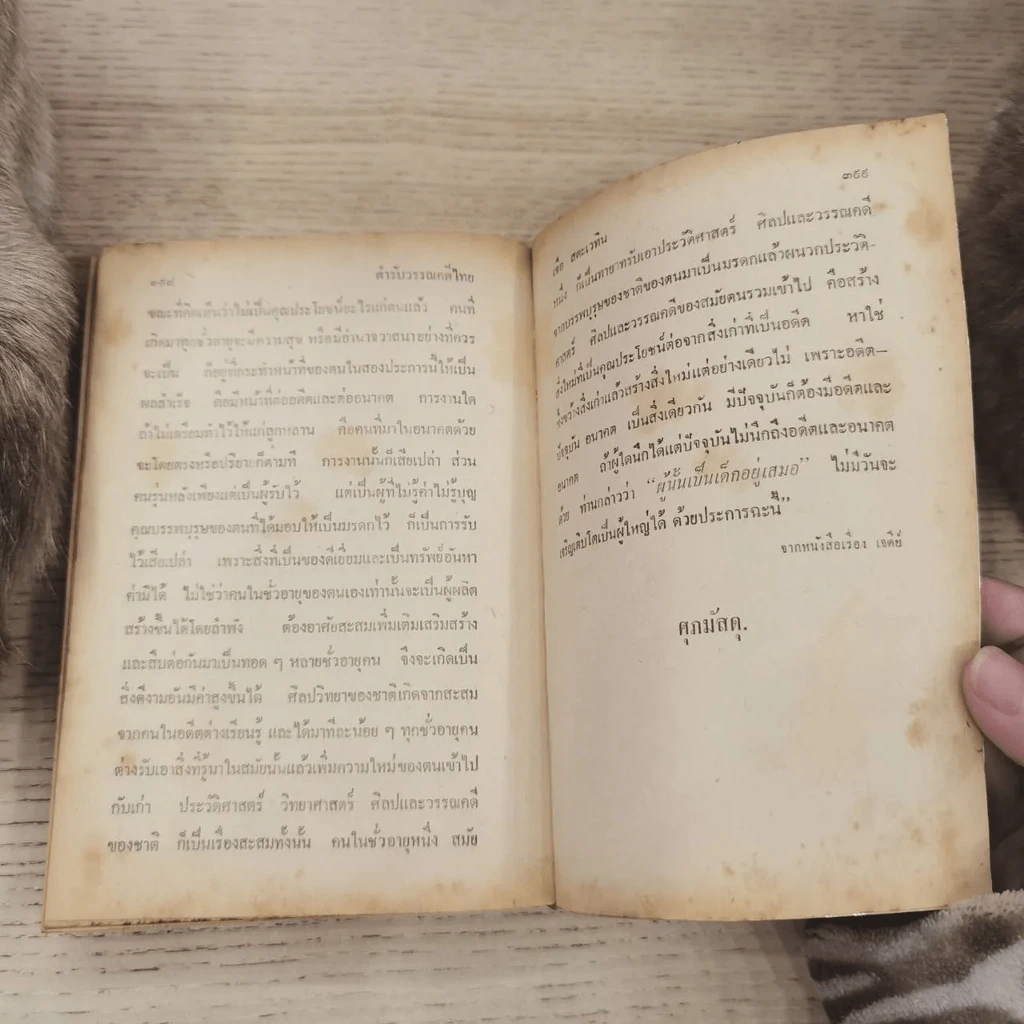 ๓๙๘ ตำรับวรรณคดีไทย
ขณะที่คิดเห็นว่าไม่เป็นคุณประโยชน์อะไรแก่ตนแล้ว คนที่
เกิดมาทุกชั่วอายุจะมีความสุข หรือมีอำนาจวาสนาอย่างที่ควร
จะเป็น ก็อยู่ที่กระทำหน้าที่ของตนในสองประการนี้ให้เป็น
ผลสำเร็จ คือมีหน้าที่ต่ออดีตและต่ออนาคต การงานใด
ถ้าไม่เตรียมทำไว้ให้แก่ลูกหลาน คือคนที่มาในอนาคตด้วย
จะโดยตรงหรือปริยายก็ตามที การงานนั้นก็เสียเปล่า ส่วน
คนรุ่นหลังเพียงแต่เป็นผู้รับไว้ แต่เป็นผู้ที่ไม่รู้ค่าไม่รู้บุญ
คุณบรรพบุรุษของตนที่ได้มอบให้เป็นมรดกไว้ ก็เป็นการรับ
ไว้เสียเปล่า เพราะสิ่งที่เป็นของดีเยี่ยมและเป็นทรัพย์อันหา
ค่ามิได้ ไม่ใช่ว่าคนในชั่วอายุของตนเองเท่านั้นจะเป็นผู้ผลิต
สร้างขึ้นได้โดยลำพัง ต้องอาศัยสะสมเพิ่มเติมเสริมสร้าง
และสืบต่อกันมาเป็นทอด ๆ หลายชั่วอายุคน จึงจะเกิดเป็น
สิ่งดีงามอันมีค่าสูงขึ้นได้ ศิลปวิทยาของชาติเกิดจากสะสม
จากคนในอดีตต่างเรียนรู้ และได้มาทีละน้อย ๆ ทุกชั่วอายุคน
ต่างรับเอาสิ่งที่รู้มาในสมัยนั้นแล้วเพิ่มความใหม่ของตนเข้าไป
กับเก่า ประวัติศาสตร์ วิทยาศาสตร์ ศิลปและวรรณคดี
ของชาติ ก็เป็นเรื่องสะสมทั้งนั้น คนในชั่วอายุหนึ่ง สมัย
๓๙๙
เชื้อ สตะเวทิน
หนึ่ง ก็เป็นทายาทรับเอาประวัติศาสตร์ ศิลปและวรรณคดี
จากบรรพบุรุษของชาติของตนมาเป็นมรดกแล้วผนวกประวัติ-
ศาสตร์ ศิลปและวรรณคดีของสมัยตนรวมเข้าไป คือสร้าง
สิ่งใหม่ที่เป็นคุณประโยชน์ต่อจากสิ่งเก่าที่เป็นอดีต หาใช่
ทิ้งขว้างสิ่งเก่าแล้วสร้างสิ่งใหม่แต่อย่างเดียวไม่ เพราะอดีต—
ปัจจุบัน อนาคต เป็นสิ่งเดียวกัน มีปัจจุบันก็ต้องมีอดีตและ
อนาคต ถ้าผู้ใดนึกได้แต่ปัจจุบันไม่นึกถึงอดีตและอนาคต
ด้วย ท่านกล่าวว่า “ผู้นั้นเป็นเด็กอยู่เสมอ” ไม่มีวันจะ
เจริญเติบโตเป็นผู้ใหญ่ได้ ด้วยประการฉะนี้”
จากหนังสือเรื่อง เจดีย์
ศุภมัสดุ.